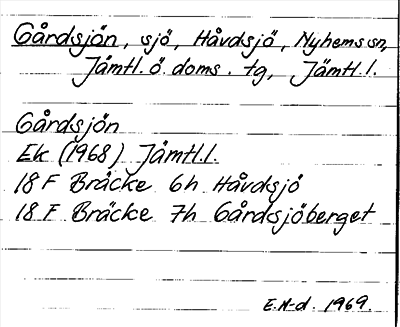 Gårdsjön, sjö, Håvdsjö, Nyhems sn,
Jämtl. ö. doms. tg, Jämtl. l.
Gårdsjön
Ek (1968) Jämtl. l.
18 F Bräcke 6h Håvdsjö
18 F Bräcke 7h Gårdsjöberget
E.N-d. 1969.